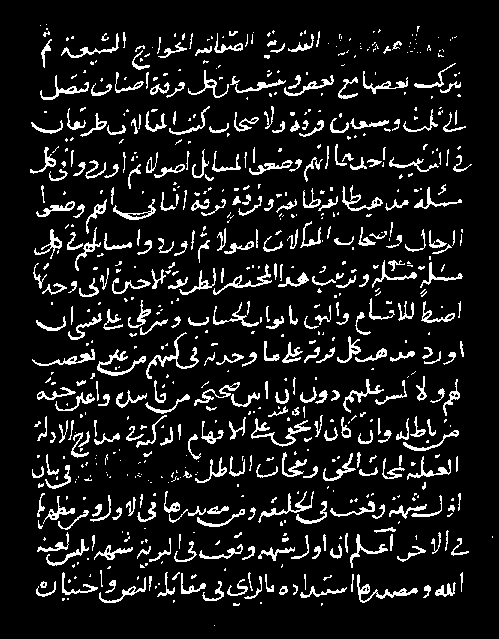 القدرية الصفاتية الخوارج الشيعة ثم
يتركب بعضها مع بعض ويتشعب عن كل فرقة اصناف فتصل
الى ثلث وسبعين فرقة ولاصحاب كتب المقالات طريقان
في الترتيب احدهما انهم وضعوا المسايل اصولا ثم اوردوا في كل
مسئلة مذهب طايفة طايفة وفرقة فرقة الثاني انهم وضعوا
الرجال واصحاب المقالات اصولا ثم اوردوا مسايلهم في
مسئلة مسئلة وترتيب هذا المختصر الطريقة الاخيرة لاني وجدتها
اضبط للاقسام واليق بابواب الحساب وشرطي على نفسي ان
اورد مذهب كل فرقة على ما وجدته في كتبهم من غير تعصب
لهم ولا كسر عليهم دون ان ابين صحيحه من فاسده واعين حقه
من باطله وان كان لا يخفى على الافهام الذكية في مدارج الادلة
العقلية لمحات الحق ونفحات الباطل في بيان
اول شبهة وقعت في الخليقة ومن مصدرها في الاول ومن مظهرها
في الاخر اعلم ان اول شبهة وقعت في البرية شبهة ابليس لعنه
الله ومصدرها استبداده بالراي في مقابلة النص واختياره